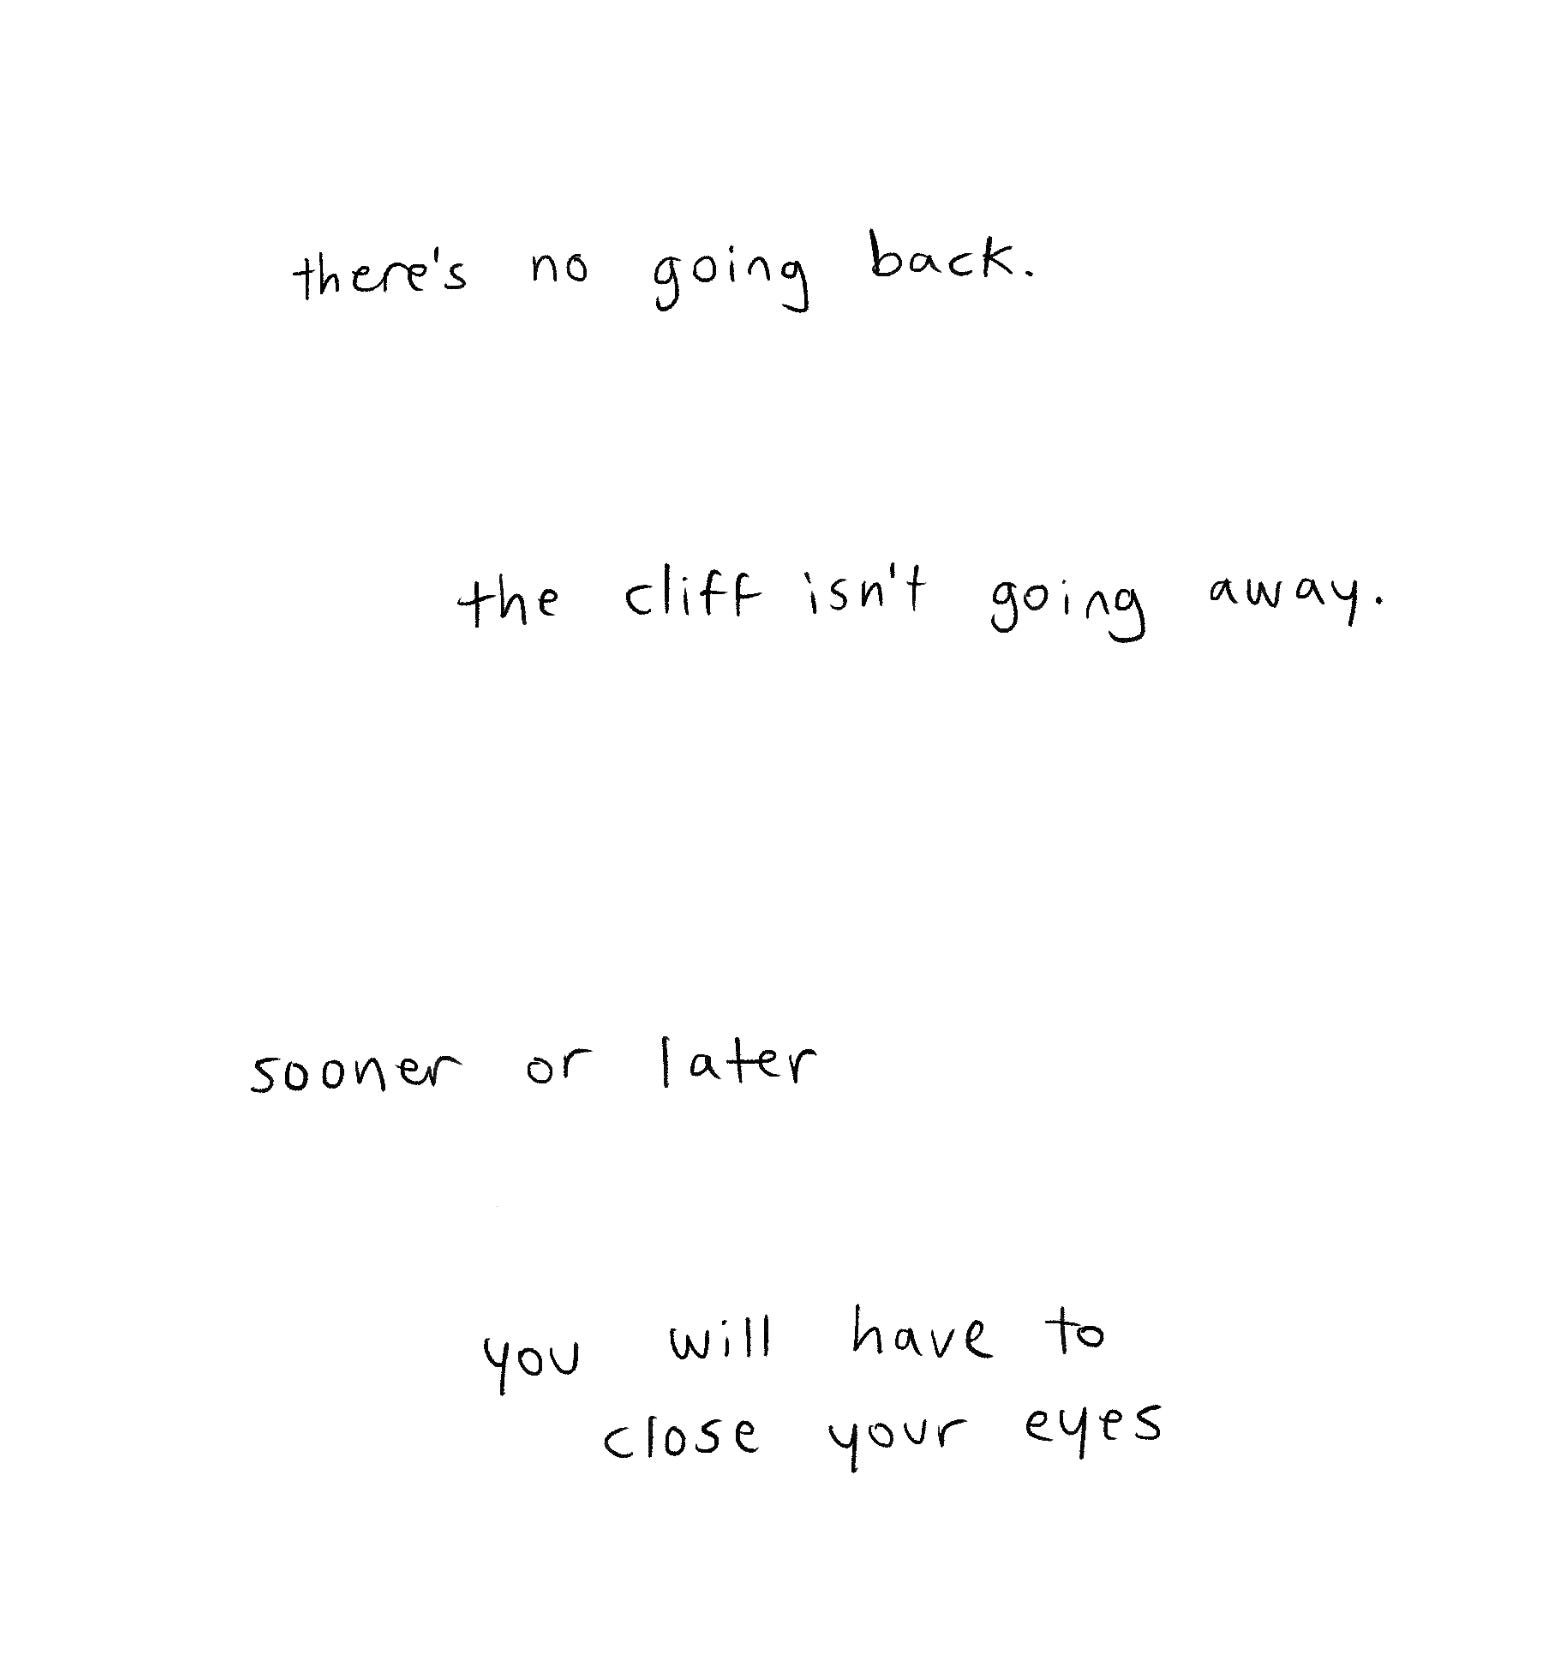 there's no going back.
the cliff isn't going away.
sooner or later
you will have to
close your eyes